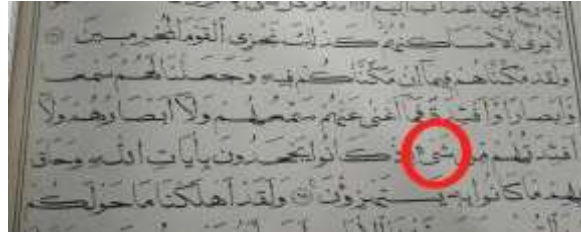 به ريح فيها عذاب أليم
لَا يُرَىٰ إِلَّا مَسَاكِنُهُمْ كَذَٰلِكَ نَجْزِي الْقَوْمَ الْمُجْرِمِينَ
وَلَقَدْ مَكَّنَّاهُمْ فِيمَا إِن مَّكَّنَّاكُمْ فِيهِ وَجَعَلْنَا لَهُمْ سَمْعًا
وَأَبْصَارًا وَأَفْئِدَةً فَمَا أَغْنَىٰ عَنْهُمْ سَمْعُهُمْ وَلَا أَبْصَارُهُمْ وَلَا
أَفْئِدَتُهُم مِّن شَيْءٍ إِذْ كَانُوا يَجْحَدُونَ بِآيَاتِ اللَّهِ وَحَاقَ
بِهِم مَّا كَانُوا بِهِ يَسْتَهْزِئُونَ وَلَقَدْ أَهْلَكْنَا مَا حَوْلَكُم